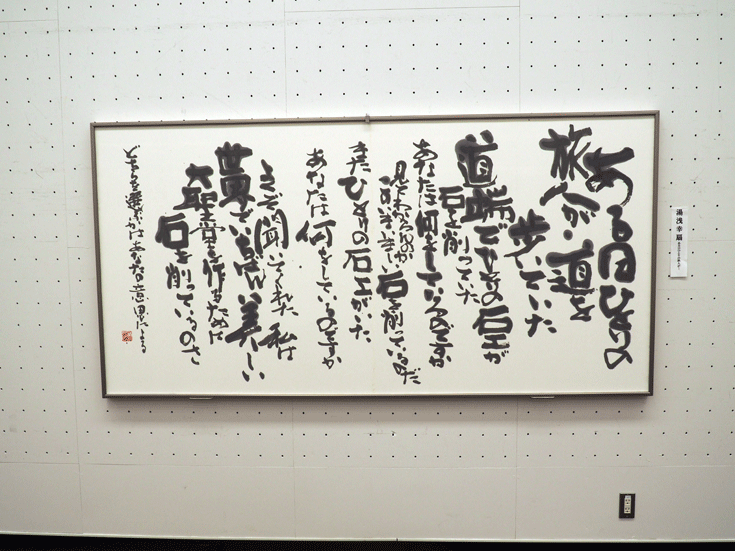 ある日ひとりの
旅人が道を
歩いていた
道端でひとりの石工が
石を削っていた
あなたは何をしているのですか
見てわからんのか
このいまいましい石を削っているのだ
またひとりの石工がいた
あなたは何をしているのですか
よくぞ聞いてくれた私は
世界でいちばん美しい
大聖堂を作るために
石を削っているのさ
どちらを選ぶかはあなたの意思による
湯浅幸